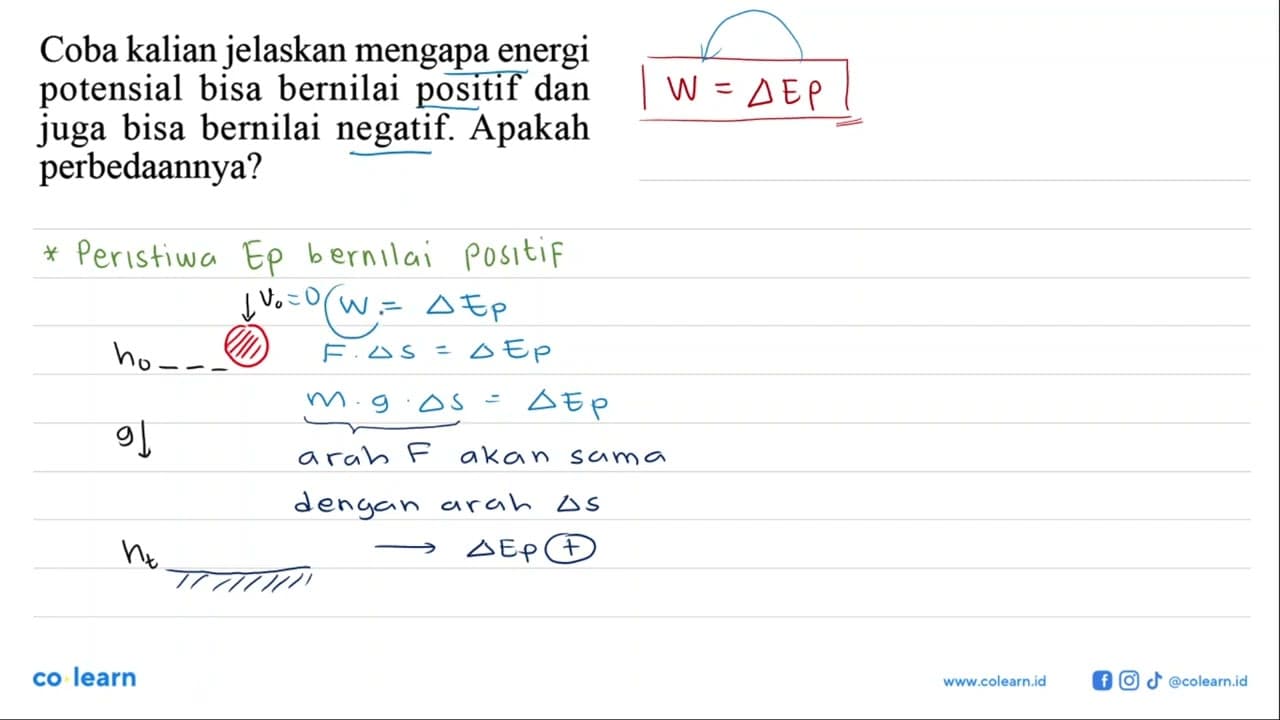 Coba kalian jelaskan mengapa energi
potensial bisa bernilai positif dan
juga bisa bernilai negatif. Apakah
perbedaannya?
W = ΔEp
* Peristiwa Ep bernilai positif
↓ V₀ = 0
W = ΔEp
h₀
F . Δs = ΔEp
m . g . Δs = ΔEp
g↓
arah F akan sama
dengan arah Δs
hₜ
→ ΔEp (+)
co learn
www.colearn.id
@colearn.id